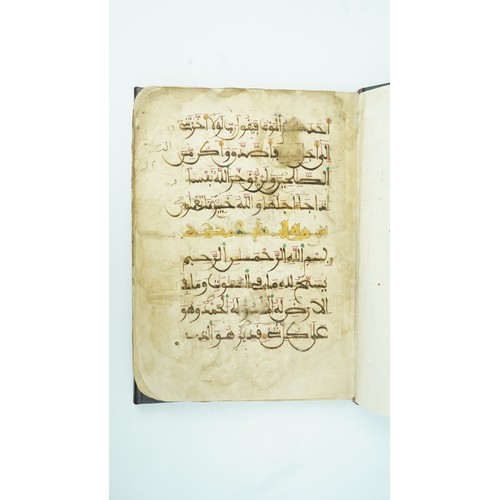 احدكم الموت فيقول رب لولا اخرتني
الى اجل قريب فاصدق واكن من
الصلحين ولن يوخر الله نفسا
اذا جا اجلها والله خبير بما تعملون
بسم الله الرحمن الرحيم
يسبح لله ما في السموت وما في
الارض له الملك وله الحمد وهو
على كل شي قدير هو الذي